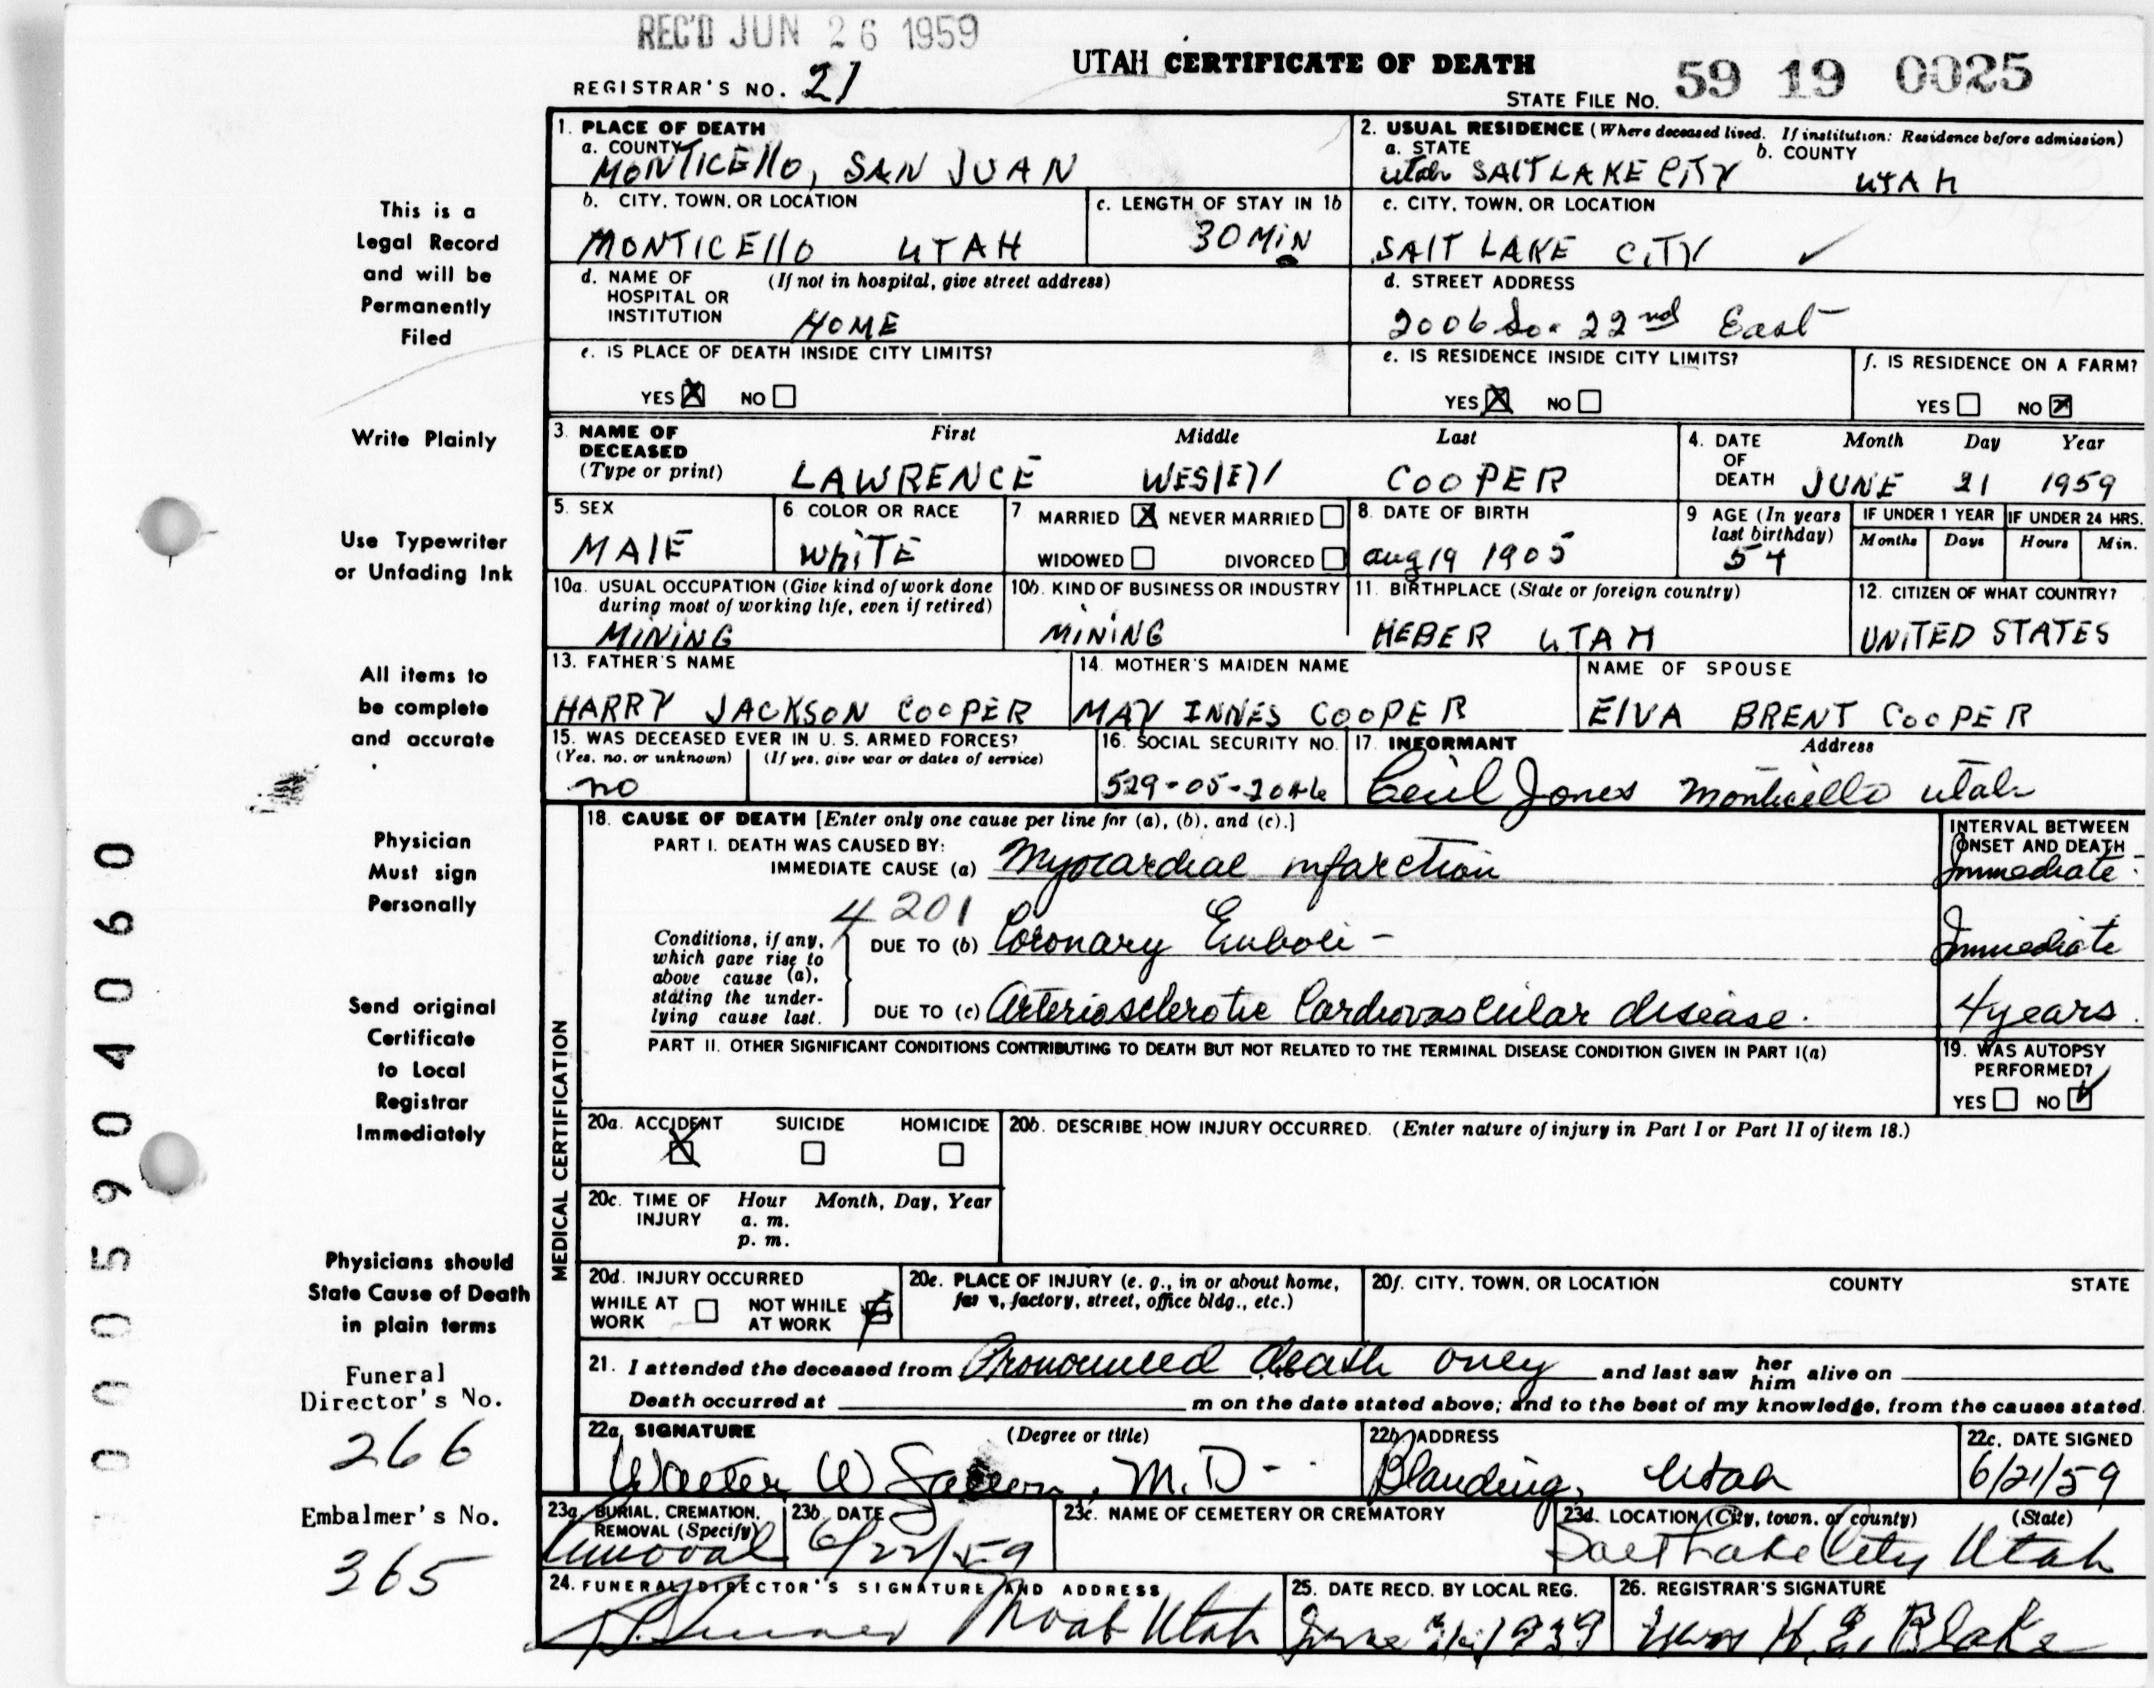 REC'D JUN 26 1959
UTAH CERTIFICATE OF DEATH
REGISTRAR'S NO. 21
STATE FILE No. 59 19 0025
1. PLACE OF DEATH
a. COUNTY
MONTICEllO, SAN JUAN
2. USUAL RESIDENCE (Where deceased lived. If institution: Residence before admission)
a. STATE b. COUNTY
Utah SAlT LAKE CiTY UTAH
b. CITY, TOWN, OR LOCATION
MONTICEllO UTAH
c. LENGTH OF STAY IN 1b
30 MiN
c. CITY, TOWN, OR LOCATION
SAlT LAKE CiTY
d. NAME OF HOSPITAL OR INSTITUTION (If not in hospital, give street address)
HOME
d. STREET ADDRESS
2006 So. 22nd East
e. IS PLACE OF DEATH INSIDE CITY LIMITS?
YES NO
e. IS RESIDENCE INSIDE CITY LIMITS?
YES NO
f. IS RESIDENCE ON A FARM?
YES NO
3. NAME OF DECEASED (Type or print)
First Middle Last
LAWRENCE WESlEY COOPER
4. DATE OF DEATH Month Day Year
JUNE 21 1959
5. SEX
MAlE
6 COLOR OR RACE
WhiTE
7 MARRIED NEVER MARRIED
WIDOWED DIVORCED
8. DATE OF BIRTH
Aug 19 1905
9 AGE (In years last birthday)
54
IF UNDER 1 YEAR
Months Days
IF UNDER 24 HRS.
Hours Min.
10a. USUAL OCCUPATION (Give kind of work done during most of working life, even if retired)
MiNiNG
10b. KIND OF BUSINESS OR INDUSTRY
MiNiNG
11. BIRTHPLACE (State or foreign country)
HEBER UTAH
12. CITIZEN OF WHAT COUNTRY?
UNiTED STATES
13. FATHER'S NAME
HARRY JACKSON COOPER
14. MOTHER'S MAIDEN NAME
MAY INNES COOPER
NAME OF SPOUSE
ElVA BRENT COOPER
15. WAS DECEASED EVER IN U. S. ARMED FORCES?
(Yes, no, or unknown) (If yes, give war or dates of service)
no
16. SOCIAL SECURITY NO.
529-05-
17. INFORMANT Address
Cecil Jones Monticello Utah
MEDICAL CERTIFICATION
18. CAUSE OF DEATH [Enter only one cause per line for (a), (b), and (c).]
PART I. DEATH WAS CAUSED BY:
IMMEDIATE CAUSE (a) Myocardial infarction
INTERVAL BETWEEN ONSET AND DEATH
Immediate
4201
Conditions, if any, which gave rise to above cause (a), stating the underlying cause last.
DUE TO (b) Coronary Emboli -
Immediate
DUE TO (c) Arteriosclerotic Cardiovascular disease.
4 years
PART II. OTHER SIGNIFICANT CONDITIONS CONTRIBUTING TO DEATH BUT NOT RELATED TO THE TERMINAL DISEASE CONDITION GIVEN IN PART I(a)
19. WAS AUTOPSY PERFORMED?
YES NO
20a. ACCIDENT SUICIDE HOMICIDE
20b. DESCRIBE HOW INJURY OCCURRED. (Enter nature of injury in Part I or Part II of item 18.)
20c. TIME OF INJURY Hour Month, Day, Year
a. m.
p. m.
20d. INJURY OCCURRED
WHILE AT WORK NOT WHILE AT WORK
20e. PLACE OF INJURY (e. g., in or about home, factory, street, office bldg., etc.)
20f. CITY, TOWN, OR LOCATION COUNTY STATE
21. I attended the deceased from Pronounced death only and last saw her him alive on
Death occurred at m on the date stated above; and to the best of my knowledge, from the causes stated.
22a. SIGNATURE (Degree or title)
Walter W M.D.
22b. ADDRESS
Blanding, Utah
22c. DATE SIGNED
6/21/59
23a. BURIAL, CREMATION, REMOVAL (Specify)
Removal
23b. DATE
6/22/59
23c. NAME OF CEMETERY OR CREMATORY
23d. LOCATION (City, town, or county) (State)
Salt Lake City Utah
24. FUNERAL DIRECTOR'S SIGNATURE AND ADDRESS
Moab Utah
25. DATE RECD. BY LOCAL REG.
June
26. REGISTRAR'S SIGNATURE
Blake
This is a
Legal Record
and will be
Permanently
Filed
Write Plainly
Use Typewriter
or Unfading Ink
All items to
be complete
and accurate
Physician
Must sign
Personally
Send original
Certificate
to Local
Registrar
Immediately
Physicians should
State Cause of Death
in plain terms
Funeral
Director's No.
266
Embalmer's No.
365
0005904060